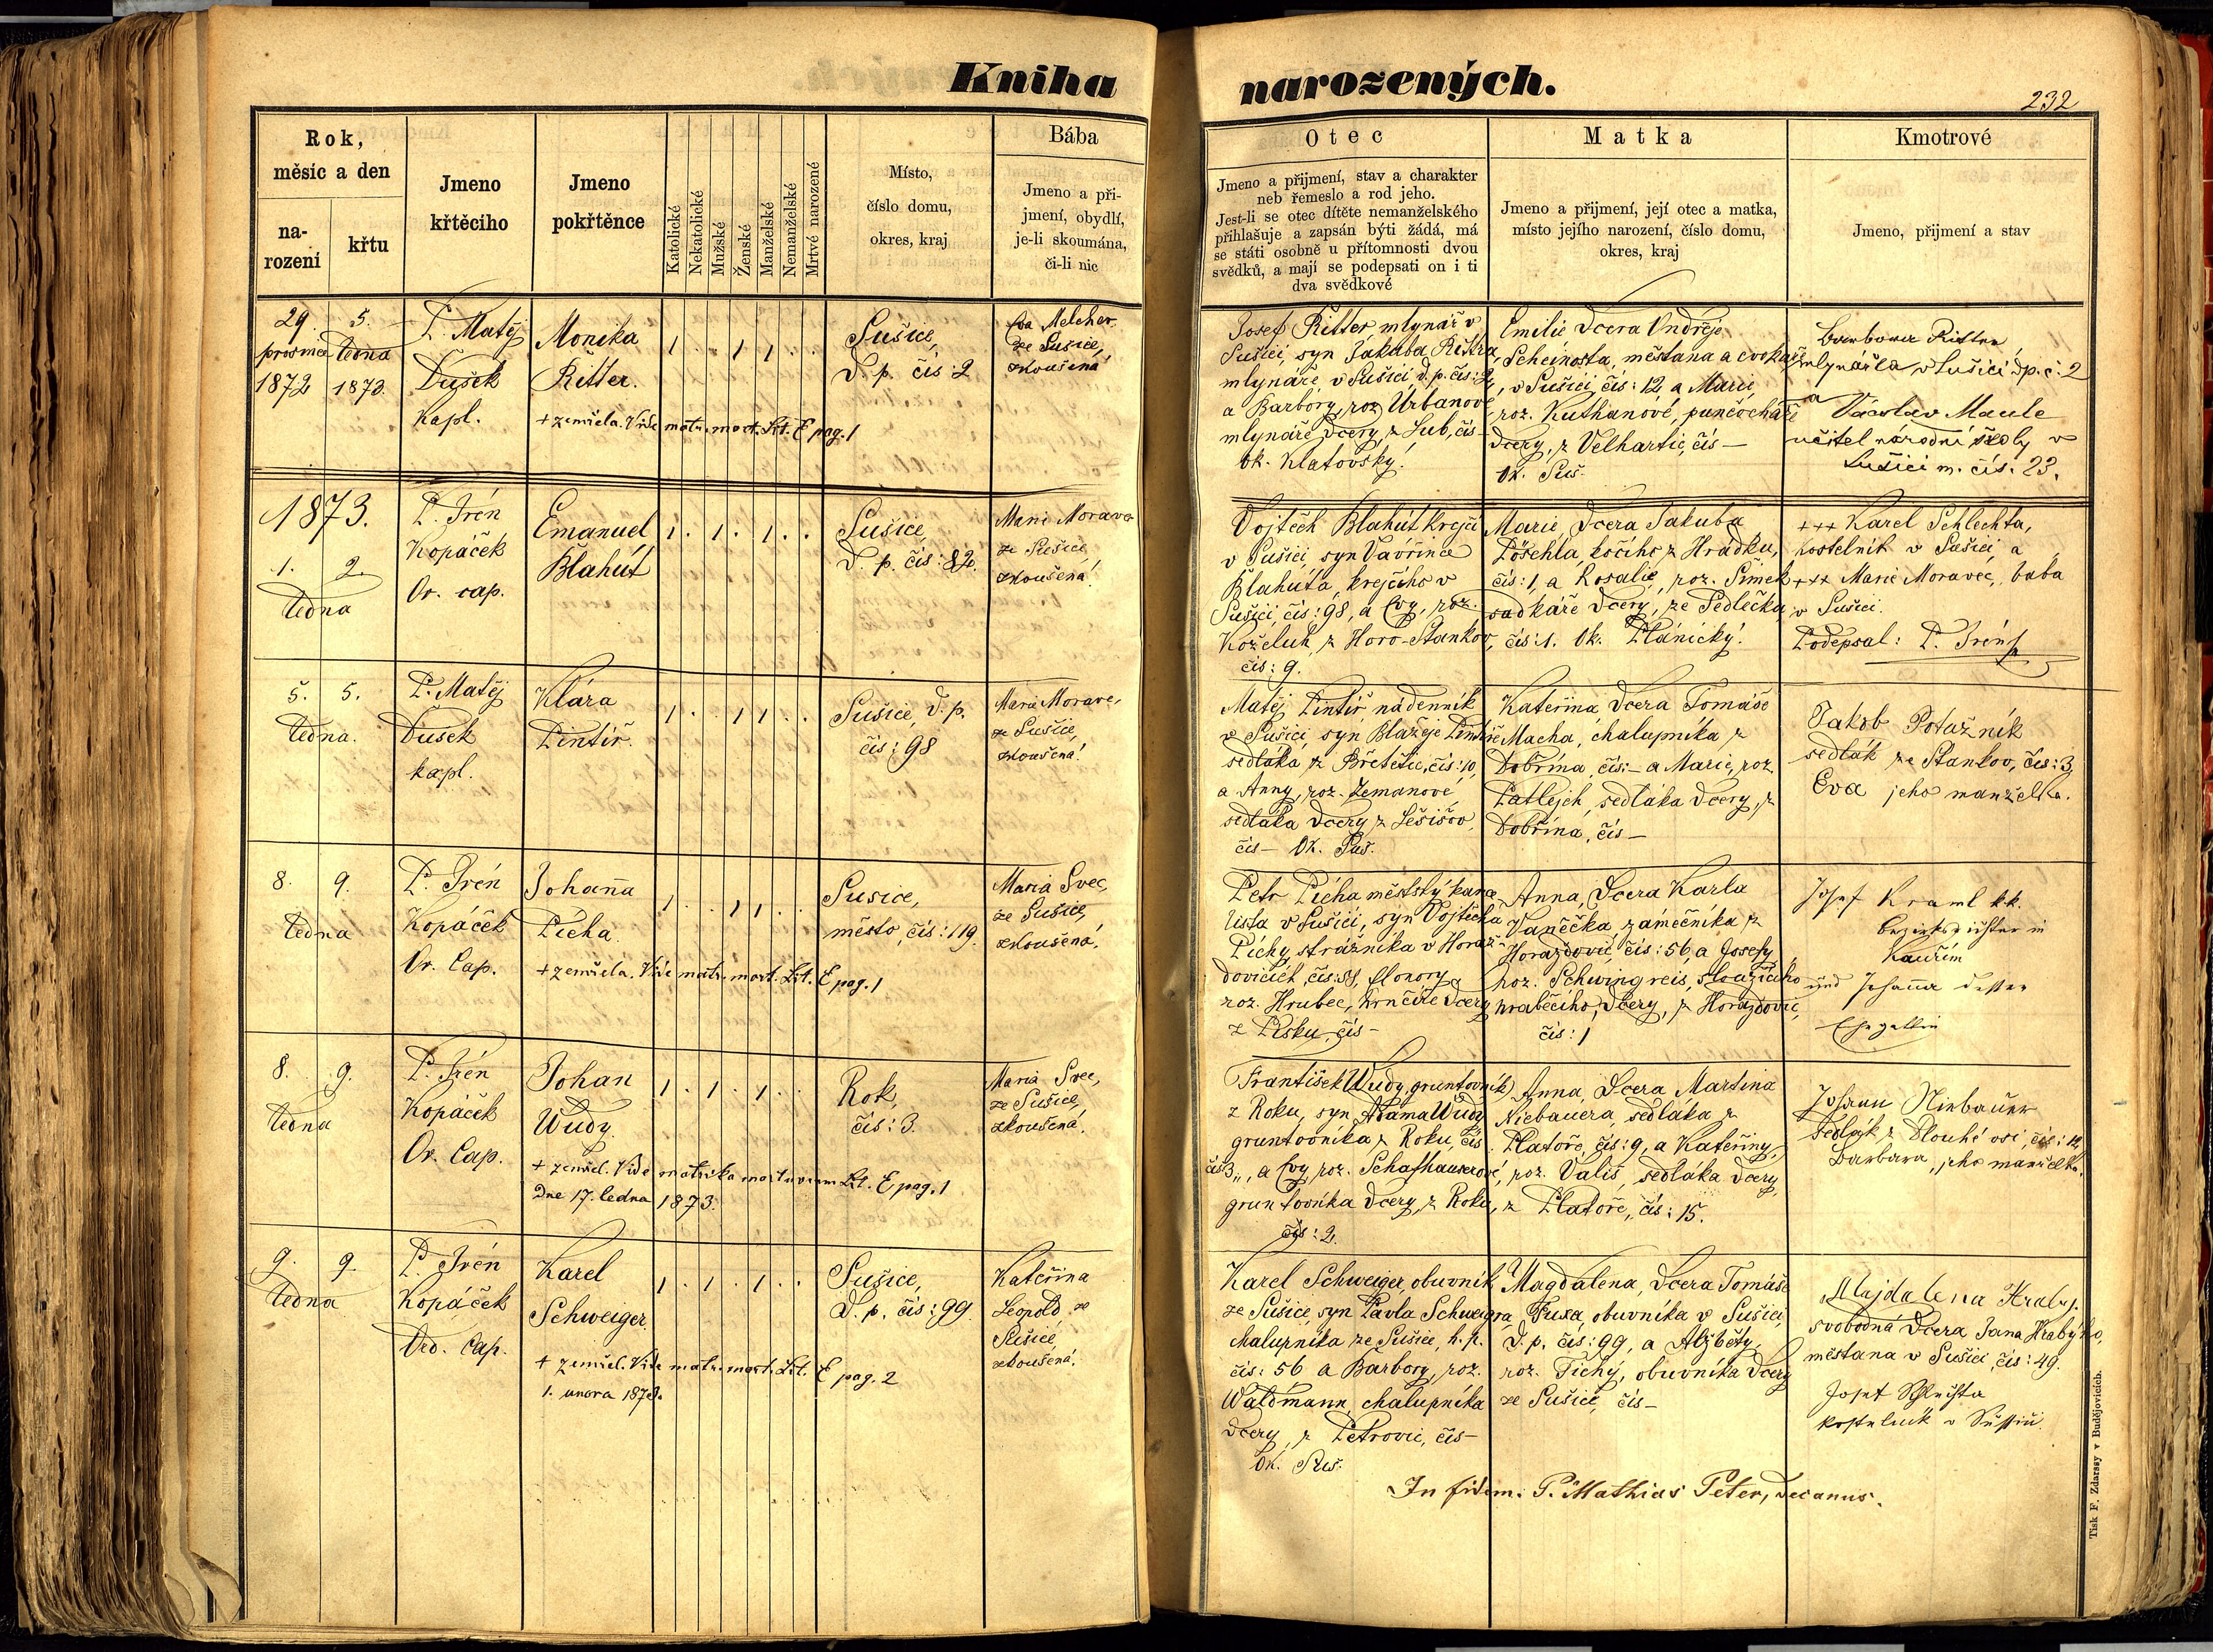 Kniha
narozených.
232
Rok,
měsíc a den
na-
rození
křtu
Jmeno
křtěcího
Jmeno
pokřtěnce
Katolické
Nekatolické
Mužské
Ženské
Manželské
Nemanželské
Mrtvé narozené
Místo,
číslo domu,
okres, kraj
Bába
Jmeno a při-
jmení, obydlí,
je-li skoumána,
či-li nic
Otec
Jmeno a přijmení, stav a charakter
neb řemeslo a rod jeho.
Jest-li se otec dítěte nemanželského
přihlašuje a zapsán býti žádá, má
se státi osobně u přítomnosti dvou
svědků, a mají se podepsati on i ti
dva svědkové
Matka
Jmeno a přijmení, její otec a matka,
místo jejího narození, číslo domu,
okres, kraj
Kmotrové
Jmeno, přijmení a stav
29.
prosince
1872
5.
ledna
1873.
P. Matěj
Dušek
kapl.
Monika
Ritter.
+ zemřela. Vide matr. mort. Lit. E pag. 1
1 . . 1 1 . .
Sušice,
d. p. čís: 2
Eva Melcher
ze Sušice,
zkoušená
Josef Ritter mlynář v
Sušici, syn Jakuba Rittra,
mlynáře, v Sušici, d. p. čís: 2,
a Barbory, roz. Urbanové
mlynáře dcery, z Lub, čís –
ok. Klatovský.
Emilie dcera Ondřeje
Scheinosta, měšťana a cvokaře
v Sušici, čís: 12, a Marie,
roz. Kuthanové, punčocháře
dcery, z Velhartic, čís –
Ok. Suš.
Barbora Ritter
mlynářka v Sušici d p. č. 2
a
Václav Maule
učitel národní školy v
Sušici m. čís. 23.
1873.
1. 2.
ledna
P. Irén
Kopáček
Or. cap.
Emanuel
Blahút
1 . 1 . 1 . .
Sušice,
d. p. čís: 82.
Marie Moravec
ze Sušice
zkoušená!
Vojtěch Blahút krejčí
v Sušici syn Vavřince
Blahúta, krejčího v
Sušici, čís: 98, a Evy, roz.
Koželuh, z Horo-Stankov,
čís: 9.
Marie, dcera Jakuba
Pöschla, kočího z Hrádku,
čís: 1, a Rosalie, roz. Šimek
sadkáře dcery, ze Sedlečka,
čís: 1. Ok. Plánický.
+++ Karel Schlechta,
kostelník v Sušici, a
+++ Marie Moravec, baba
v Sušici.
Podepsal: P. Irén
5. 5.
ledna.
P. Matěj
Dušek
kapl.
Klára
Pintíř.
1 . . 1 1 . .
Sušice, d. p.
čís: 98
Maria Moravec,
ze Sušice,
zkoušená!
Matěj Pintíř nádenník
v Sušici, syn Blažeje Pintíře
sedláka z Břetětic, čís: 10,
a Anny, roz. Zemanové
sedláka dcery z Lešišov,
čís – Ok. Suš.
Kateřina dcera Tomáše
Macha, chalupníka z
Dobřína, čís: – a Marie, roz.
Patlejch, sedláka dcery, z
Dobřína, čís –
Jakob Potužník
sedlák ze Stankov, čís: 3,
Eva jeho manželka.
8. 9.
ledna
P. Irén
Kopáček
Or. Cap.
Johanna
Pícha
+ zemřela. Vide matr. mort. Lit. E pag. 1
1 . . 1 1 . .
Sušice,
město, čís: 119.
Maria Švec,
ze Sušice,
zkoušená.
Petr Pícha městský kance
lista v Sušici, syn Vojtěcha
Píchy, strážníka v Horaž-
dovicích, čís: 58, Elonory
roz. Hrubec, hrnčíře dcery
z Písku, čís –
Anna, dcera Karla
Vaněčka, zámečníka z
Horažďovic, čís: 56, a Josefy
roz. Schwingreis, sloužícího
hraběcího, dcery, z Horažďovic,
čís: 1
Josef Kraml k.k.
Bezirksrichter in
Kauřim
und Johanna dessen
Ehegattin
8. 9.
ledna
P. Irén
Kopáček
Or. Cap.
Johan
Wudy.
+ zemřel. Vide matrika mortuorum Lit. E, pag. 1
dne 17. ledna 1873.
1 . 1 . 1 . .
Rok,
čís: 3.
Maria Švec,
ze Sušice,
zkoušená.
František Wudy, gruntovník
z Roku, syn Adama Wudy
gruntovníka z Roku, čís
čís 3., a Evy, roz. Schafhauserové,
gruntovníka dcery, z Roku,
čís: 2.
Anna, dcera Martina
Niebauera, sedláka z
Platoře, čís: 9, a Kateřiny,
roz. Vališ, sedláka dcery,
z Platoře, čís: 15.
Johann Niebauer
sedlák z Dlouhé vsi, čís: 12,
Barbara, jeho manželka.
9. 9.
ledna
P. Irén
Kopáček
Ord. Cap.
Karel
Schweiger.
+ zemřel. Vide matr. mort. Lit. E pag. 2
1. unora 1873.
1 . 1 . 1 . .
Sušice,
d. p. čís: 99.
Kateřina
Leopold, ze
Sušice,
zkoušená.
Karel Schweiger, obuvník
ze Sušice, syn Pavla Schweigra
chalupníka ze Sušice, h. p.
čís: 56 a Barbory, roz.
Waldmann, chalupníka
dcery, z Petrovic, čís –
Ok. Suš.
Magdalena, dcera Tomáše
Fuxa, obuvníka v Sušici,
d. p. čís: 99, a Alžběty,
roz. Tichý, obuvníka dcery
ze Sušice, čís –
Majdalena Hrabý.
svobodná dcera Jana Hrabýho,
měšťana v Sušici, čís: 49.
Josef Schlechta
kostelník v Sušici
In fidem: P. Mathias Peter, decanus.
Tisk F. Zdarssy v Budějovicích.